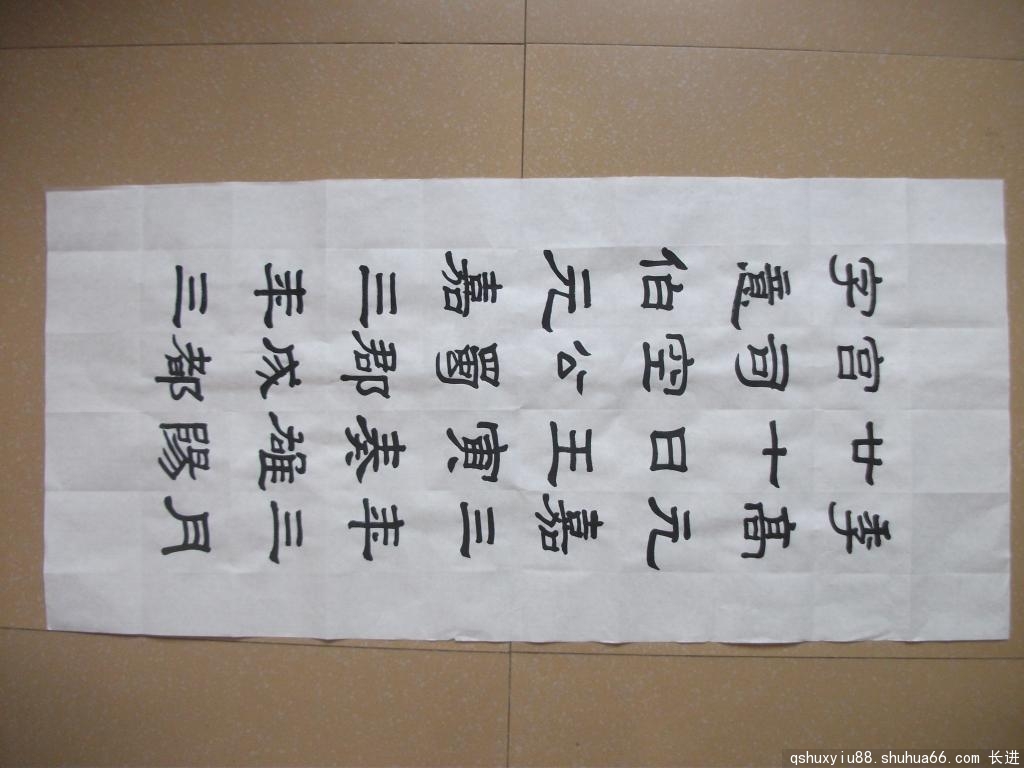 季高元嘉三年三月
廿十日王寅奏雒陽
宫司空公蜀郡成都
字意伯元嘉三年三
qshuxyiu88.shuhua66.com 长进